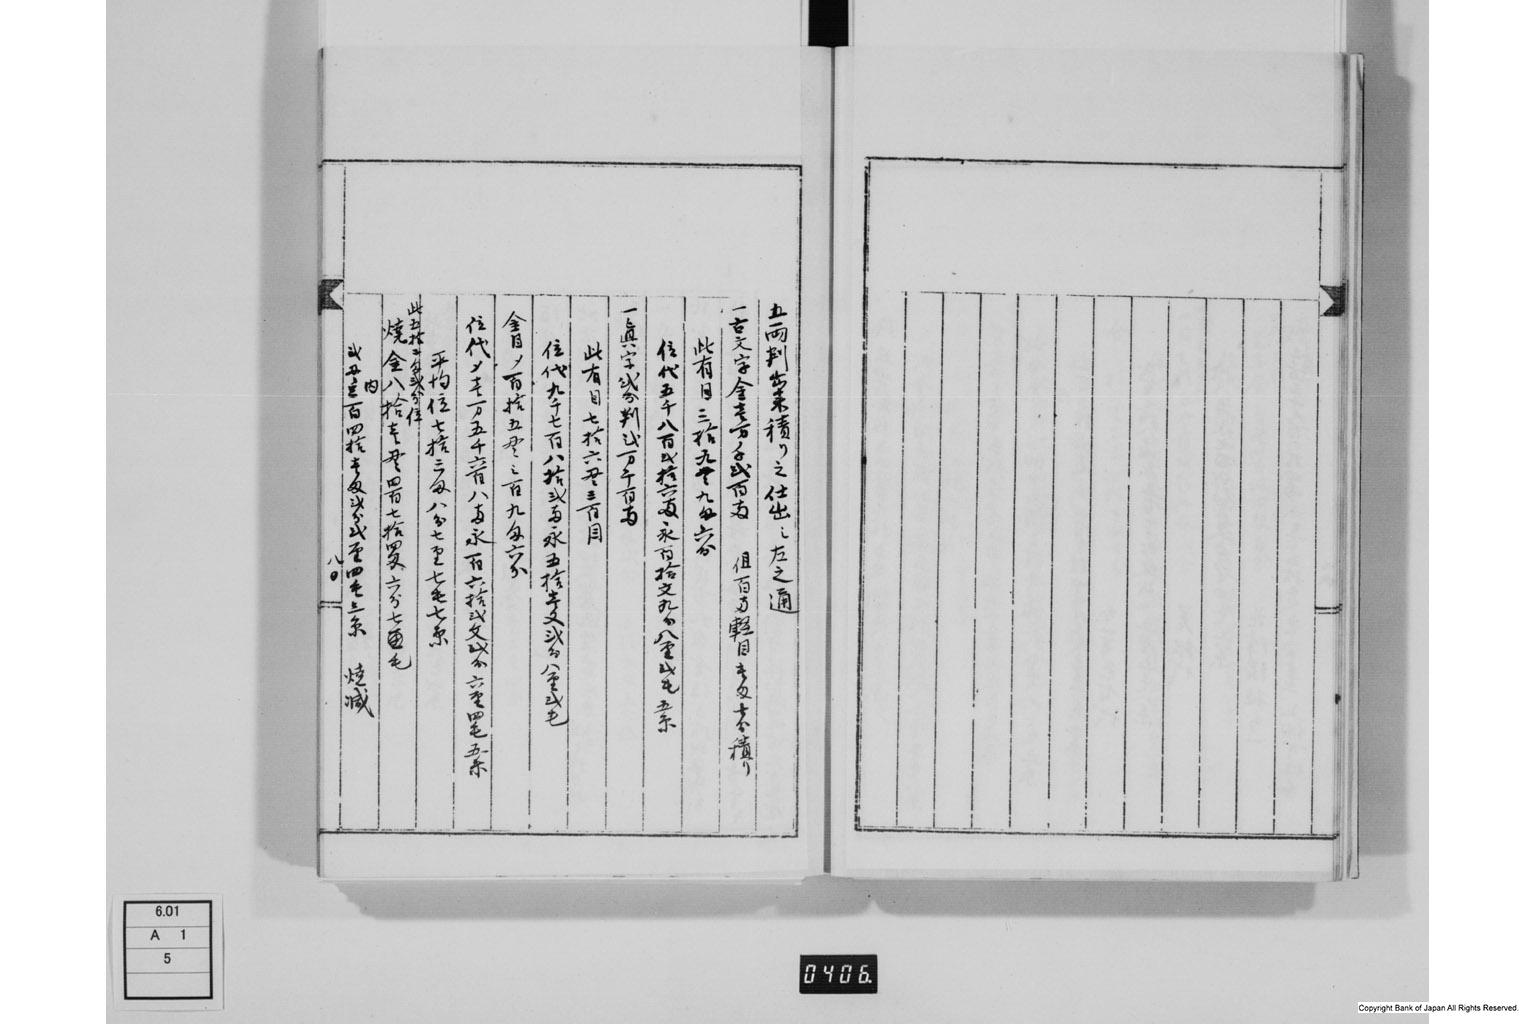 五両判出来積り之仕出し左之通
一古文字金壱万千弐百両　但百両軽目壱匁七分積り
此有目三拾九貫九匁六分
位代五千八百弐拾六両永百拾文九分八厘弐毛五糸
一真字弐分判弐万千百両
此有目七拾六貫三百目
位代九千七百八拾弐両永五拾壱文弐分八厘弐毛
金目〆百拾五貫三百九匁六分
位代〆壱万五千六百八両永百六拾弐文弐分六厘四毛五糸
平均位七拾三匁八分七厘七毛七糸
此五拾弐匁弐分位
焼金八拾壱貫四百七拾四匁六分七厘毛
内
百四拾壱匁弐分弐厘四毛三糸　焼減
八〇
6.01
A 1
5
0406.
Copyright Bank of Japan All Rights Reserved.